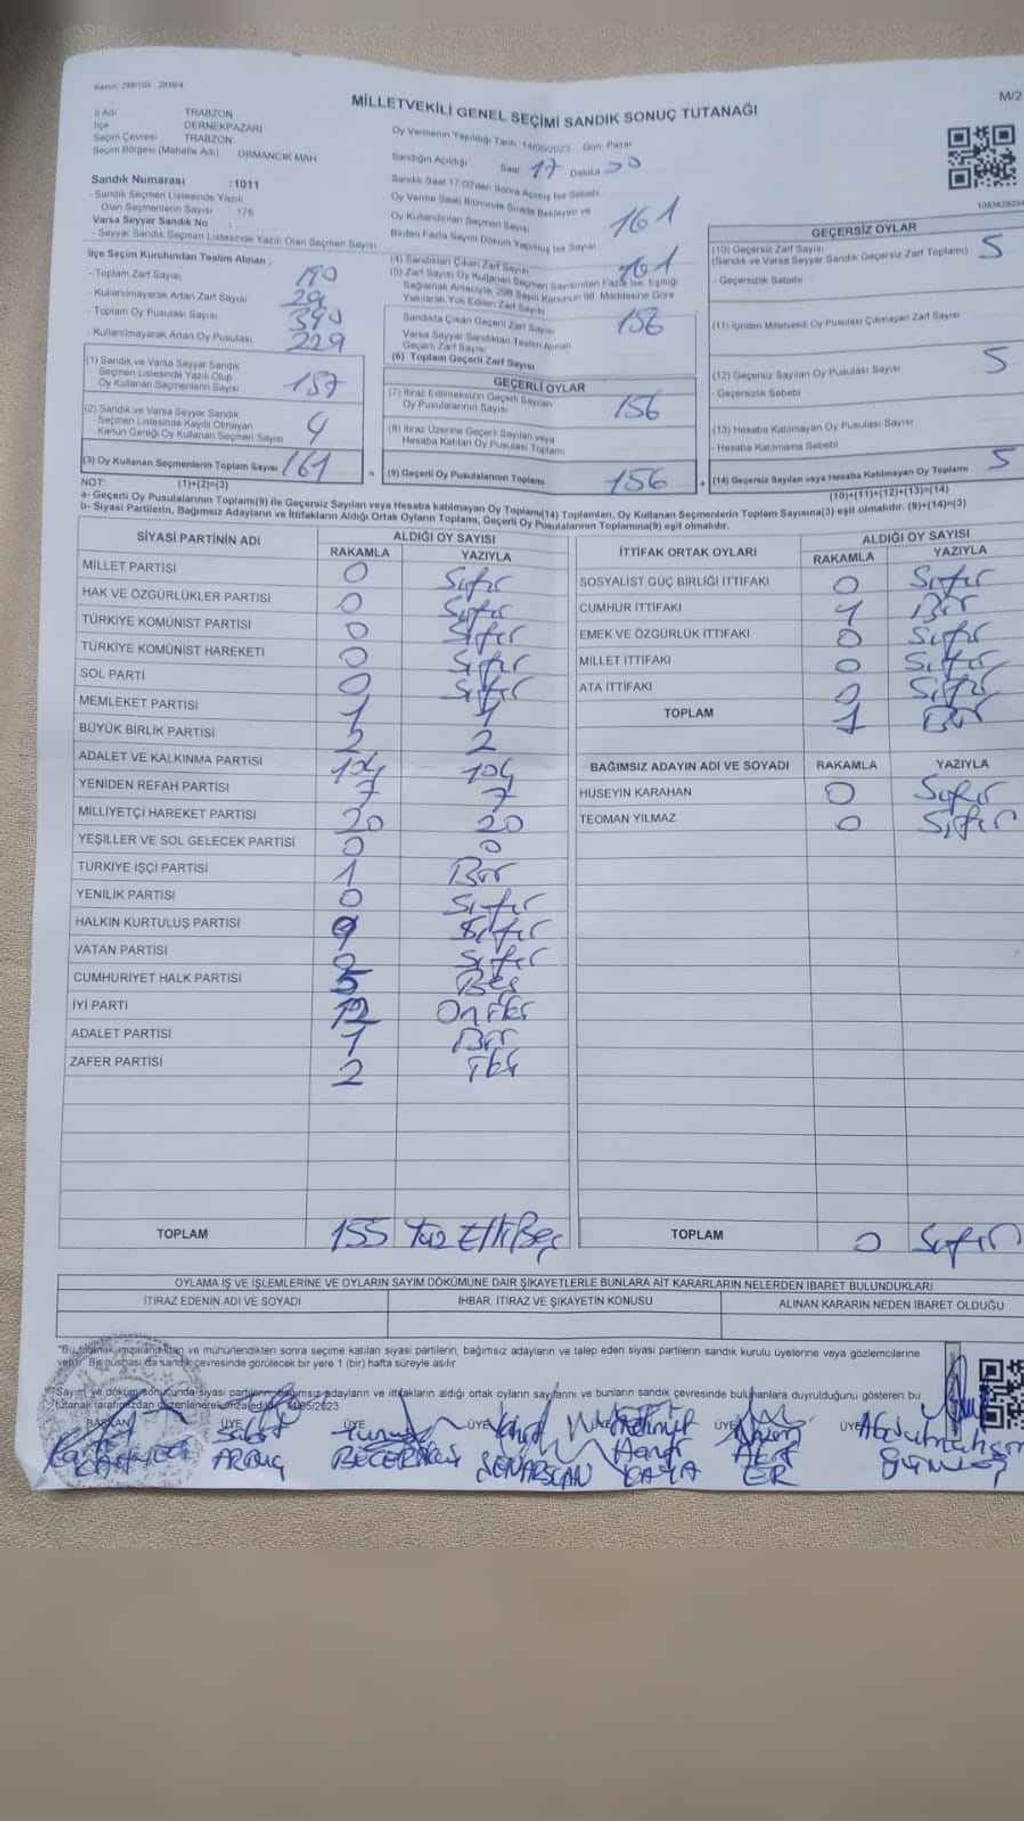 MİLLETVEKİLİ GENEL SEÇİMİ SANDIK SONUÇ TUTANAĞI
M/2
İl Adı TRABZON
İlçe DERNEKPAZARI
Seçim Çevresi TRABZON
Seçim Bölgesi (Mahalle Adı) ORMANCIK MAH
Sandık Numarası :1011
- Sandık Seçmen Listesinde Yazılı
Olan Seçmenlerin Sayısı : 176
Varsa Seyyar Sandık No
- Seyyar Sandık Seçmen Listesinde Yazılı Olan Seçmen Sayısı
Oy Vermenin Yapıldığı Tarih :14/05/2023 Gün Pazar
Sandığın Açıldığı Saat 17 Dakika
Sandık Saat 17:00'den Sonra Açılmış İse Sebebi
Oy Verme Saati Bitiminde Sırada Bekleyen ve
Oy Kullandırılan Seçmen Sayısı 161
Birden Fazla Sayım Döküm Yapılmış İse Sayısı
İlçe Seçim Kurulundan Teslim Alınan :
- Toplam Zarf Sayısı 190
- Kullanılmayarak Artan Zarf Sayısı 29
- Toplam Oy Pusulası Sayısı 390
- Kullanılmayarak Artan Oy Pusulası 229
(1) Sandık ve Varsa Seyyar Sandık
Seçmen Listesinde Yazılı Olup
Oy Kullanan Seçmenlerin Sayısı 157
(2) Sandık ve Varsa Seyyar Sandık
Seçmen Listesinde Kayıtlı Olmayan
Kanun Gereği Oy Kullanan Seçmen Sayısı 4
(3) Oy Kullanan Seçmenlerin Toplam Sayısı 161
(1)+(2)=(3)
(4) Sandıktan Çıkan Zarf Sayısı 161
(5) Zarf Sayısı Oy Kullanan Seçmen Sayısından Fazla İse, Eşitliği
Sağlamak Amacıyla, 298 Sayılı Kanunun 98. Maddesine Göre
Yakılarak Yok Edilen Zarf Sayısı
Sandıkta Çıkan Geçerli Zarf Sayısı 156
Varsa Seyyar Sandıktan Teslim Alınan
Geçerli Zarf Sayısı
(6) Toplam Geçerli Zarf Sayısı
GEÇERLİ OYLAR
(7) İtiraz Edilmeksizin Geçerli Sayılan
Oy Pusulalarının Sayısı 156
(8) İtiraz Üzerine Geçerli Sayılan veya
Hesaba Katılan Oy Pusulası Toplamı
(9) Geçerli Oy Pusulalarının Toplamı 156
GEÇERSİZ OYLAR
(10) Geçersiz Zarf Sayısı
(Sandık ve Varsa Seyyar Sandık Geçersiz Zarf Toplamı) 5
- Geçersizlik Sebebi
(11) İçinden Milletvekili Oy Pusulası Çıkmayan Zarf Sayısı
(12) Geçersiz Sayılan Oy Pusulası Sayısı 5
- Geçersizlik Sebebi
(13) Hesaba Katılmayan Oy Pusulası Sayısı
- Hesaba Katılmama Sebebi
(14) Geçersiz Sayılan veya Hesaba Katılmayan Oy Toplamı 5
(10)+(11)+(12)+(13)=(14)
NOT:
a- Geçerli Oy Pusulalarının Toplamı(9) ile Geçersiz Sayılan veya Hesaba katılmayan Oy Toplamı(14) Toplamları, Oy Kullanan Seçmenlerin Toplam Sayısına(3) eşit olmalıdır. (9)+(14)=(3)
b- Siyasi Partilerin, Bağımsız Adayların ve İttifakların Aldığı Ortak Oyların Toplamı, Geçerli Oy Pusulalarının Toplamına(9) eşit olmalıdır.
SİYASİ PARTİNİN ADI ALDIĞI OY SAYISI
RAKAMLA YAZIYLA
MİLLET PARTİSİ 0 Sıfır
HAK VE ÖZGÜRLÜKLER PARTİSİ 0 Sıfır
TÜRKİYE KOMÜNİST PARTİSİ 0 Sıfır
TÜRKİYE KOMÜNİST HAREKETİ 0 Sıfır
SOL PARTİ 0 Sıfır
MEMLEKET PARTİSİ 1 1
BÜYÜK BİRLİK PARTİSİ 2 2
ADALET VE KALKINMA PARTİSİ 104 104
YENİDEN REFAH PARTİSİ 7 7
MİLLİYETÇİ HAREKET PARTİSİ 20 20
YEŞİLLER VE SOL GELECEK PARTİSİ 0 0
TÜRKİYE İŞÇİ PARTİSİ 1 Bir
YENİLİK PARTİSİ 0 Sıfır
HALKIN KURTULUŞ PARTİSİ Sıfır
VATAN PARTİSİ Sıfır
CUMHURİYET HALK PARTİSİ 5 Beş
İYİ PARTİ 12
ADALET PARTİSİ 1 Bir
ZAFER PARTİSİ 2 İki
TOPLAM 155 Yüz Elli Beş
İTTİFAK ORTAK OYLARI ALDIĞI OY SAYISI
RAKAMLA YAZIYLA
SOSYALİST GÜÇ BİRLİĞİ İTTİFAKI 0 Sıfır
CUMHUR İTTİFAKI 1 Bir
EMEK VE ÖZGÜRLÜK İTTİFAKI 0 Sıfır
MİLLET İTTİFAKI 0 Sıfır
ATA İTTİFAKI 0 Sıfır
TOPLAM 1 Bir
BAĞIMSIZ ADAYIN ADI VE SOYADI RAKAMLA YAZIYLA
HÜSEYİN KARAHAN 0 Sıfır
TEOMAN YILMAZ 0 Sıfır
TOPLAM 0 Sıfır
OYLAMA İŞ VE İŞLEMLERİNE VE OYLARIN SAYIM DÖKÜMÜNE DAİR ŞİKAYETLERLE BUNLARA AİT KARARLARIN NELERDEN İBARET BULUNDUKLARI
İTİRAZ EDENİN ADI VE SOYADI İHBAR, İTİRAZ VE ŞİKAYETİN KONUSU ALINAN KARARIN NEDEN İBARET OLDUĞU
ve mühürlendikten sonra seçime katılan siyasi partilerin, bağımsız adayların ve talep eden siyasi partilerin sandık kurulu üyelerine veya gözlemcilerine
verilir. Bir nüshası da sandık çevresinde görülecek bir yere 1 (bir) hafta süreyle asılır
Sayım ve döküm sonucunda siyasi partilerin, bağımsız adayların ve ittifakların aldığı ortak oyların sayılarını ve bunların sandık çevresinde bulunanlara duyrulduğunu gösteren bu
BAŞKAN ÜYE ÜYE ÜYE ÜYE ÜYE ÜYE
ŞENARSLAN KAYA ER